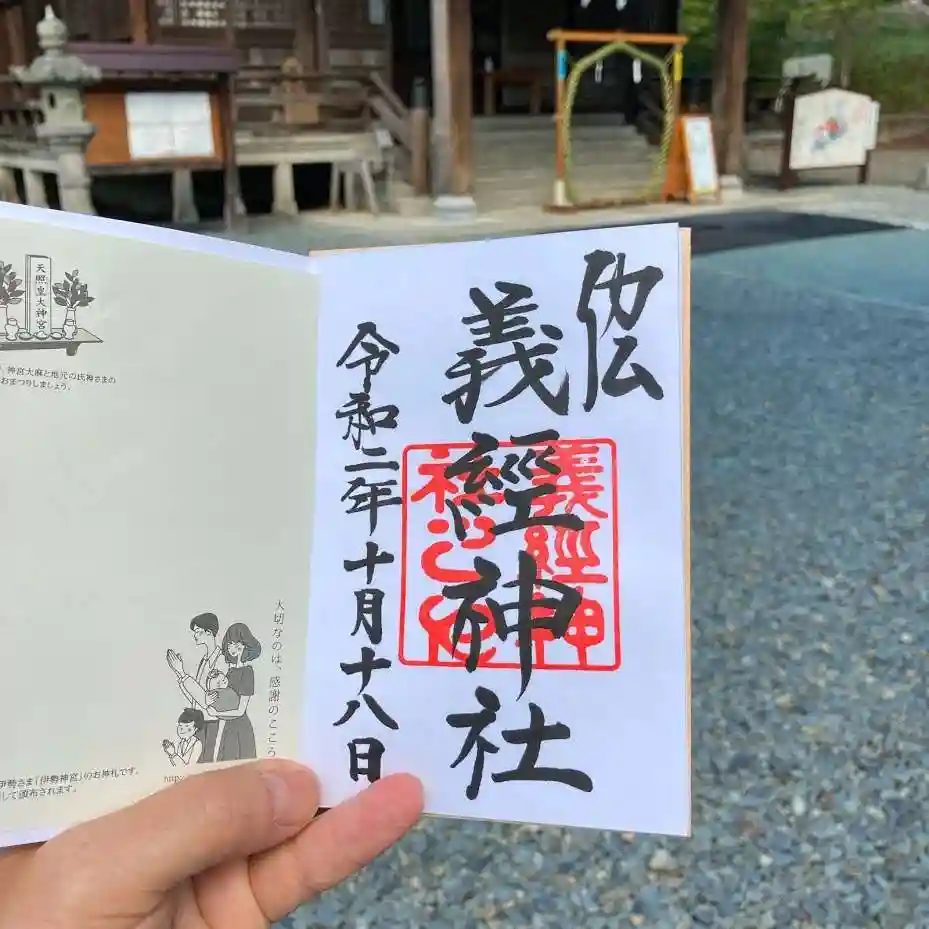 義經神社
令和二年十月十八日
義經神
天照皇大神宮
神宮大麻と地元の氏神さまの
おまつりしましょう。
大切なのは、感謝のこころ
伊勢さま「伊勢神宮」のお神札です。
して頒布されます。
http:/